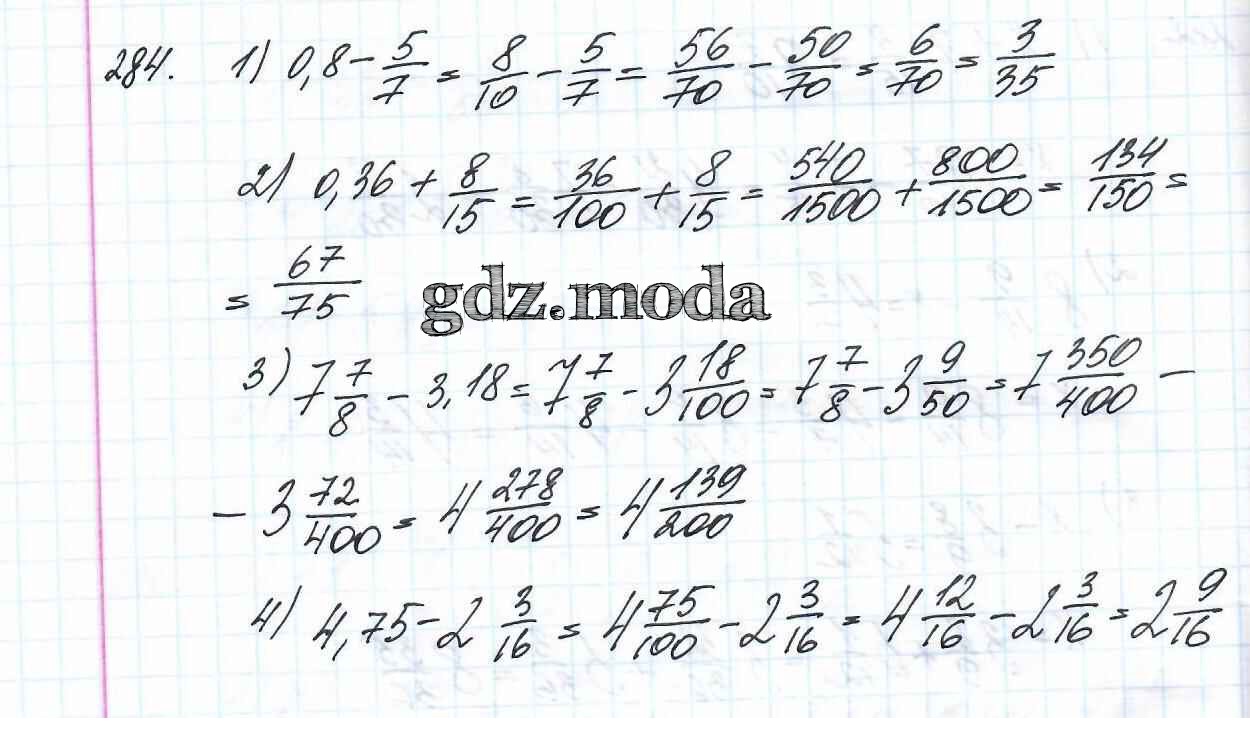 284. 1) 0,8 - 5/7 = 8/10 - 5/7 = 56/70 - 50/70 = 6/70 = 3/35
2) 0,36 + 8/15 = 36/100 + 8/15 = 540/1500 + 800/1500 = 134/150 =
= 67/75
gdz.moda
3) 7 7/8 - 3,18 = 7 7/8 - 3 18/100 = 7 7/8 - 3 9/50 = 7 350/400 -
- 3 72/400 = 4 278/400 = 4 139/200
4) 4,75 - 2 3/16 = 4 75/100 - 2 3/16 = 4 12/16 - 2 3/16 = 2 9/16